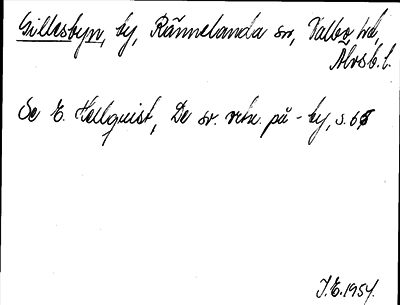 Gillesbyn, by, Rännelanda sn, Valbo hd,
Älvsb. l.
Se E. Hellquist, De sv. ortn. på -by, s. 65
J.E. 1954.